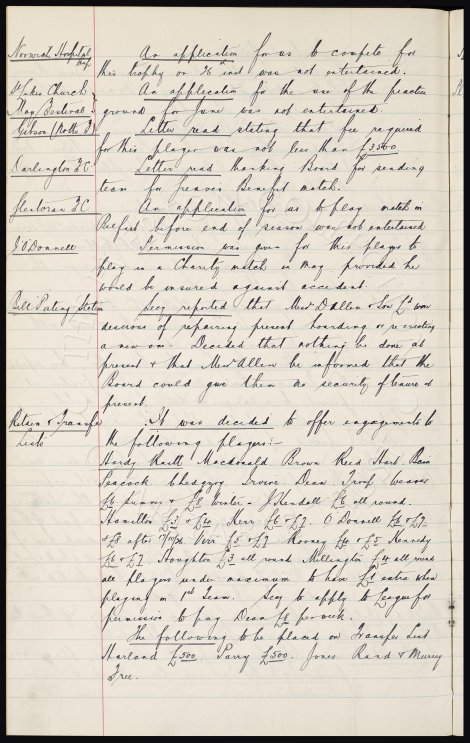 Norwich Hospital Cup
An application for us to compete for
this trophy on 26 inst was not entertained.
St Lukes Church May Festival
An application for the use of the practice
ground for June was not entertained.
Gibson (Notts F)
Letter read stating that fee required
for this player was not less than £3500
Darlington F.C
Letter read thanking Board for sending
team for Greaves Benefit match.
Glentoran F.C
An application for us to play match in
Belfast before end of season was not entertained
J O'Donnell
Permission was given for this player to
play in a Charity match in May, provided he
would be insured against accident.
Bill Posting Station
Secy reported that Messrs D Allen & Son Ld were
desirous of repairing present hoarding or re-erecting
a new one. Decided that nothing be done at
present & that Messrs Allen be informed that the
Board could give them no security of tenure at
present.
Retain & Transfer Lists
It was decided to offer engagements to
the following players:-
Hardy Raitt Macdonald Brown Reid Hart Bain
Peacock Chedgzoy Irvine Dean Troup Weaver
£6 summer & £8 Winter - J Kendall £6 all round.
Hamilton £3 & £4 Kerr £6 & £7. O'Donnell £6 & £7.
& £8 after Virr £5 & £7 Rooney £4 & £5 Kennedy
£6 & £7 Houghton £3 all round Millington £4 all round
all players under maximum to have £1 extra when
playing in 1st Team. Secy to apply to League for
permission to pay Dean £1 per week.
The following to be placed on Transfer List
Harland £300, Parry £500. Jones Rand & Murray
Free.